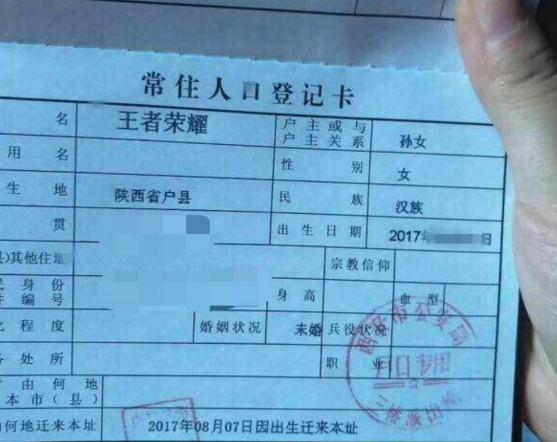 常住人口登记卡
名 王者荣耀 户主或与户主关系 孙女
用名 性别 女
生地 陕西省户县 民族 汉族
贯 出生日期 2017年 日
其他住址 宗教信仰
身份
件编号 身高 血型
化程度 婚姻状况 未婚 兵役状况
务处所 职业
由何地
本市（县）
何地迁来本址 2017年08月07日因出生迁来本址
西安市公安局
户口专用